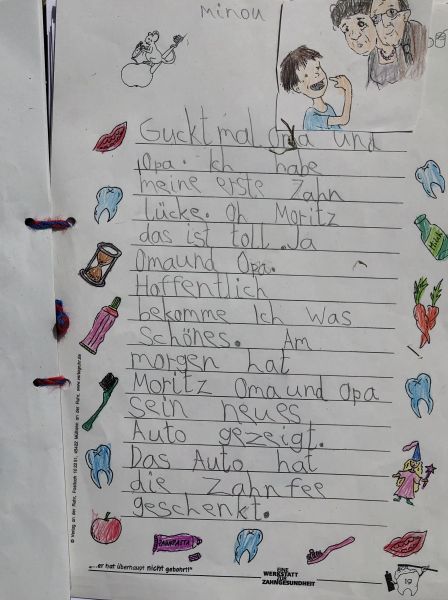 minou
Guckt mal oma und
Opa. Ich habe
meine erste Zahn
lücke. Oh Moritz
das ist toll. Ja
Omaund Opa.
Hoffentlich
bekomme Ich was
Schönes. Am
morgen hat
Moritz Omaund Opa
sein neues
Auto gezeigt.
Das Auto hat
die Zahnfee
geschenkt.
© Verlag an der Ruhr, Postfach 10 22 51, 45422 Mülheim an der Ruhr, www.verlagruhr.de
ZAHNPASTA
"...er hat überhaupt nicht gebohrt!"
EINE
WERKSTATT
ZUR
ZAHNGESUNDHEIT
19